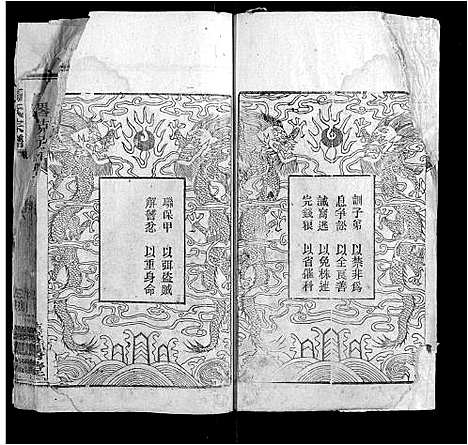 訓子弟　以禁非為
息爭訟　以全良善
誡窩逃　以免株連
完錢粮　以省催科
聯保甲　以弭盜賊
解讐忿　以重身命
氏宗譜